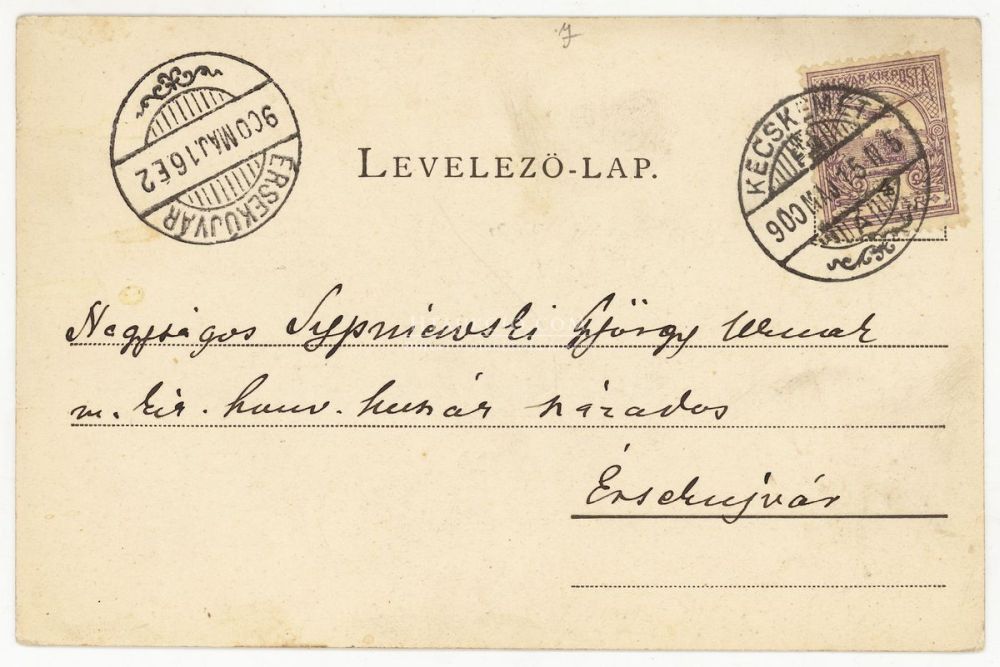 LEVELEZŐ-LAP.
MAGYAR KIR. POSTA
KECSKEMÉT
900 MÁJ. 15.
ÉRSEKÚJVÁR
900 MÁJ. 16 É 2
Nagyságos Sypniewski György Urnak
m. kir. honv. huszár százados
Érsekujvár